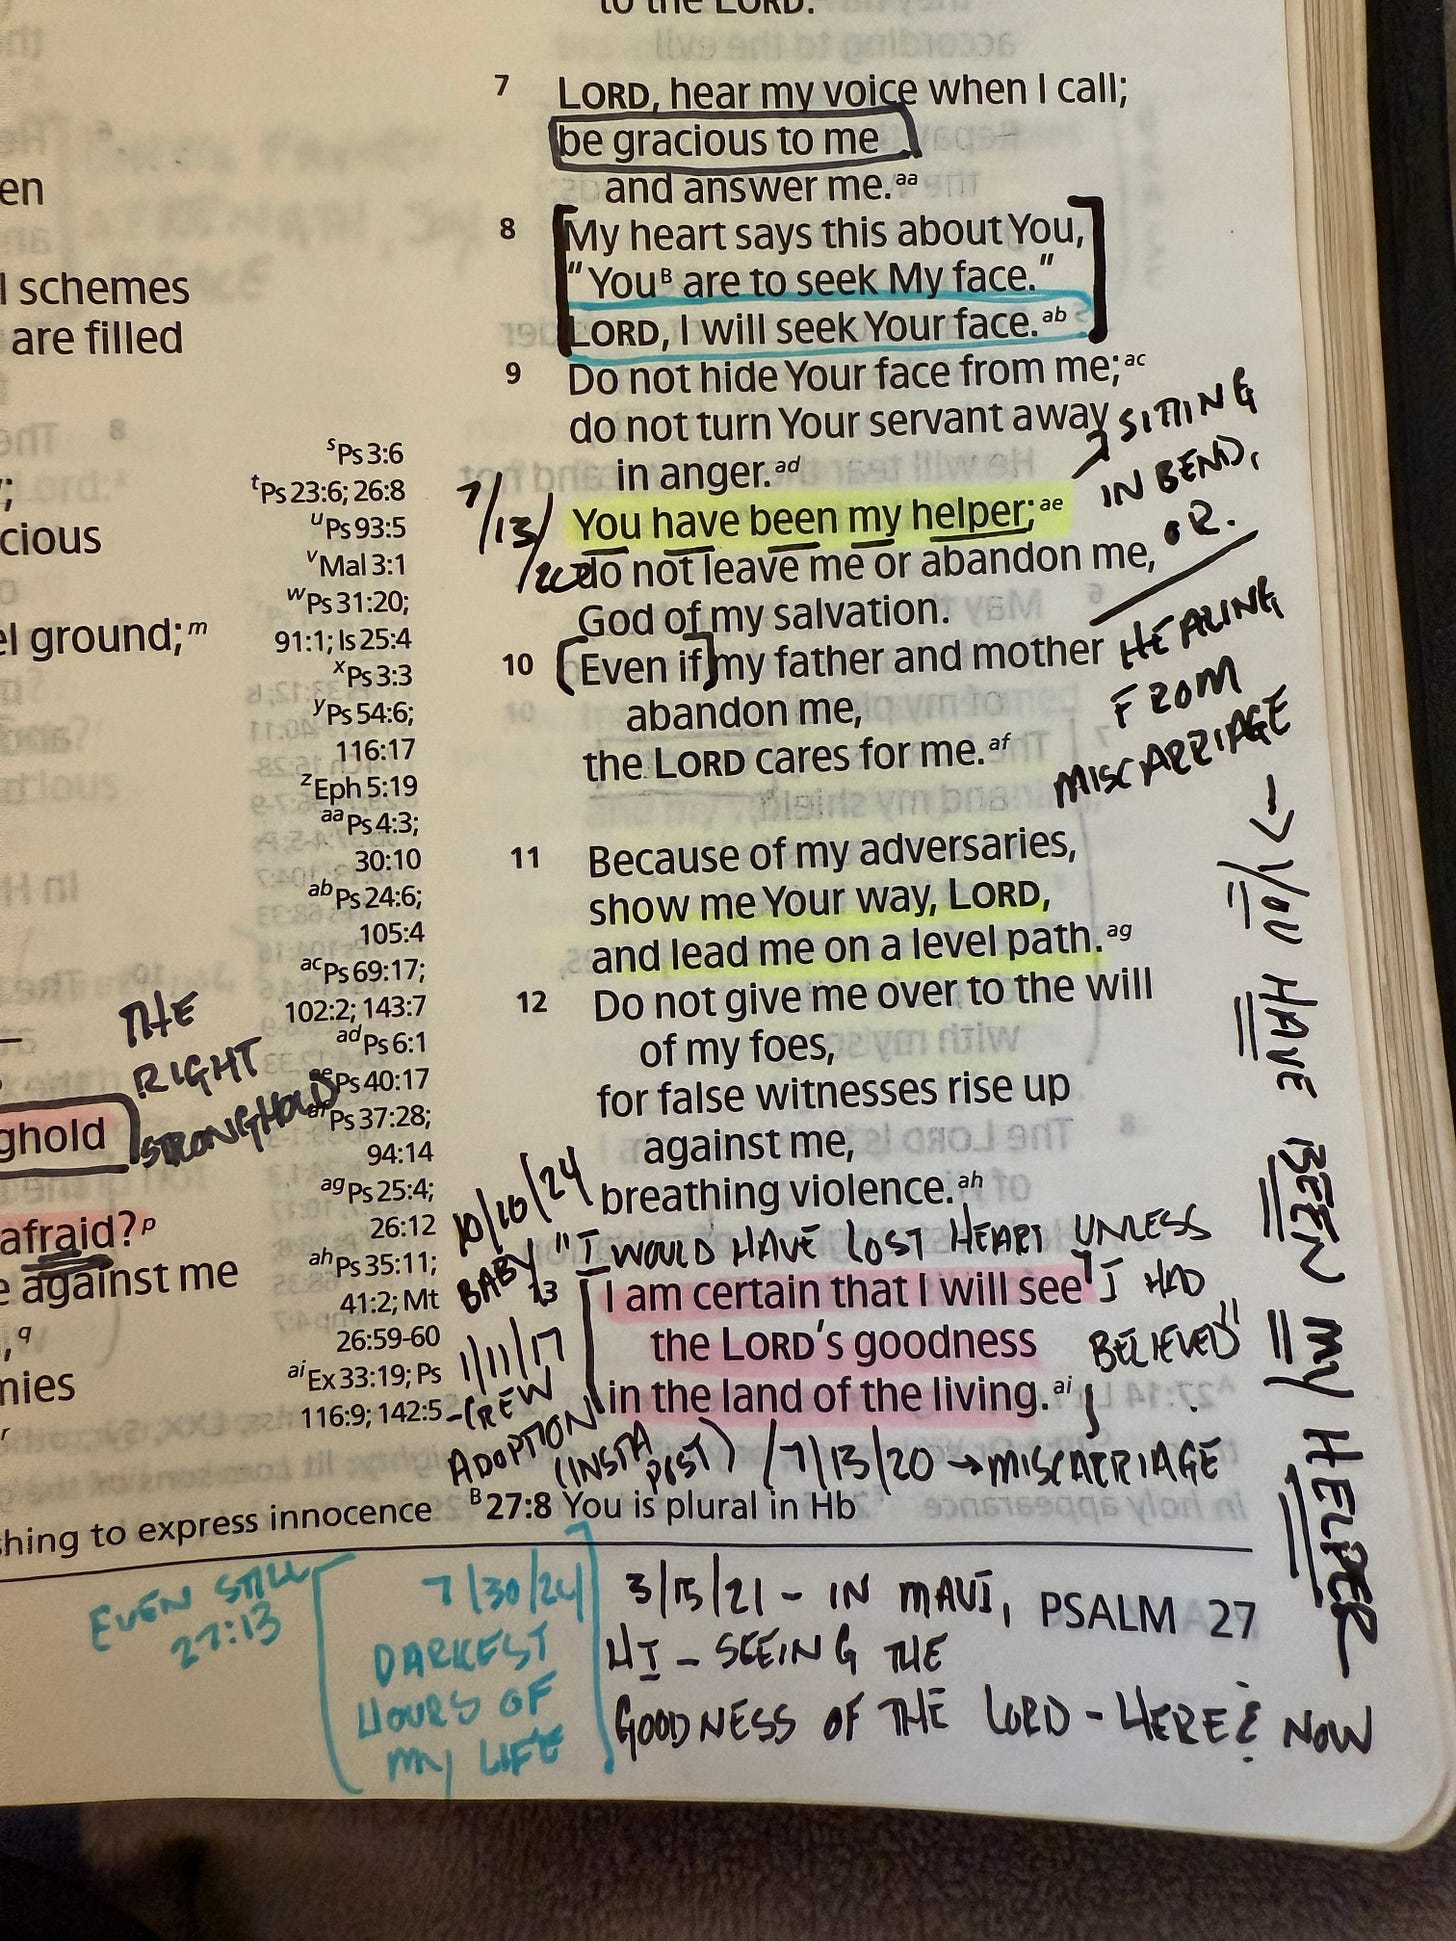 en
l schemes
are filled
;
cious
el ground;ᵐ
THE
RIGHT
STRONGHOLD
ghold
afraid?ᵖ
e against me
,q
mies
r
ˢPs 3:6
ᵗPs 23:6; 26:8
ᵘPs 93:5
ᵛMal 3:1
ʷPs 31:20;
91:1; Is 25:4
ˣPs 3:3
ʸPs 54:6;
116:17
ᶻEph 5:19
aaPs 4:3;
30:10
abPs 24:6;
105:4
acPs 69:17;
102:2; 143:7
adPs 6:1
aePs 40:17
afPs 37:28;
94:14
agPs 25:4;
26:12
ahPs 35:11;
41:2; Mt
26:59-60
aiEx 33:19; Ps
116:9; 142:5
to the LORD.
7 LORD, hear my voice when I call;
be gracious to me
and answer me.aa
8 My heart says this about You,
"Youᴮ are to seek My face."
LORD, I will seek Your face.ab
9 Do not hide Your face from me;ac
do not turn Your servant away
in anger.ad
You have been my helper;ae
do not leave me or abandon me,
God of my salvation.
10 Even if my father and mother
abandon me,
the LORD cares for me.af
11 Because of my adversaries,
show me Your way, LORD,
and lead me on a level path.ag
12 Do not give me over to the will
of my foes,
for false witnesses rise up
against me,
breathing violence.ah
"I WOULD HAVE LOST HEART UNLESS
13 I am certain that I will see
the LORD's goodness
in the land of the living.ai
I HAD
BELIEVED"
7/13/
SITTING
IN BEND,
OR.
HEALING
FROM
MISCARRIAGE
→ YOU HAVE BEEN MY HELPER
10/10/24
BABY
1/11/17
-CREW
ADOPTION
(INSTA
POST)
/7/13/20 → MISCARRIAGE
shing to express innocence
ᴮ27:8 You is plural in Hb
EVEN STILL
27:13
7/30/24
DARKEST
HOURS OF
MY LIFE
3/15/21 - IN MAUI,
HI - SEEING THE
GOODNESS OF THE LORD - HERE & NOW
PSALM 27